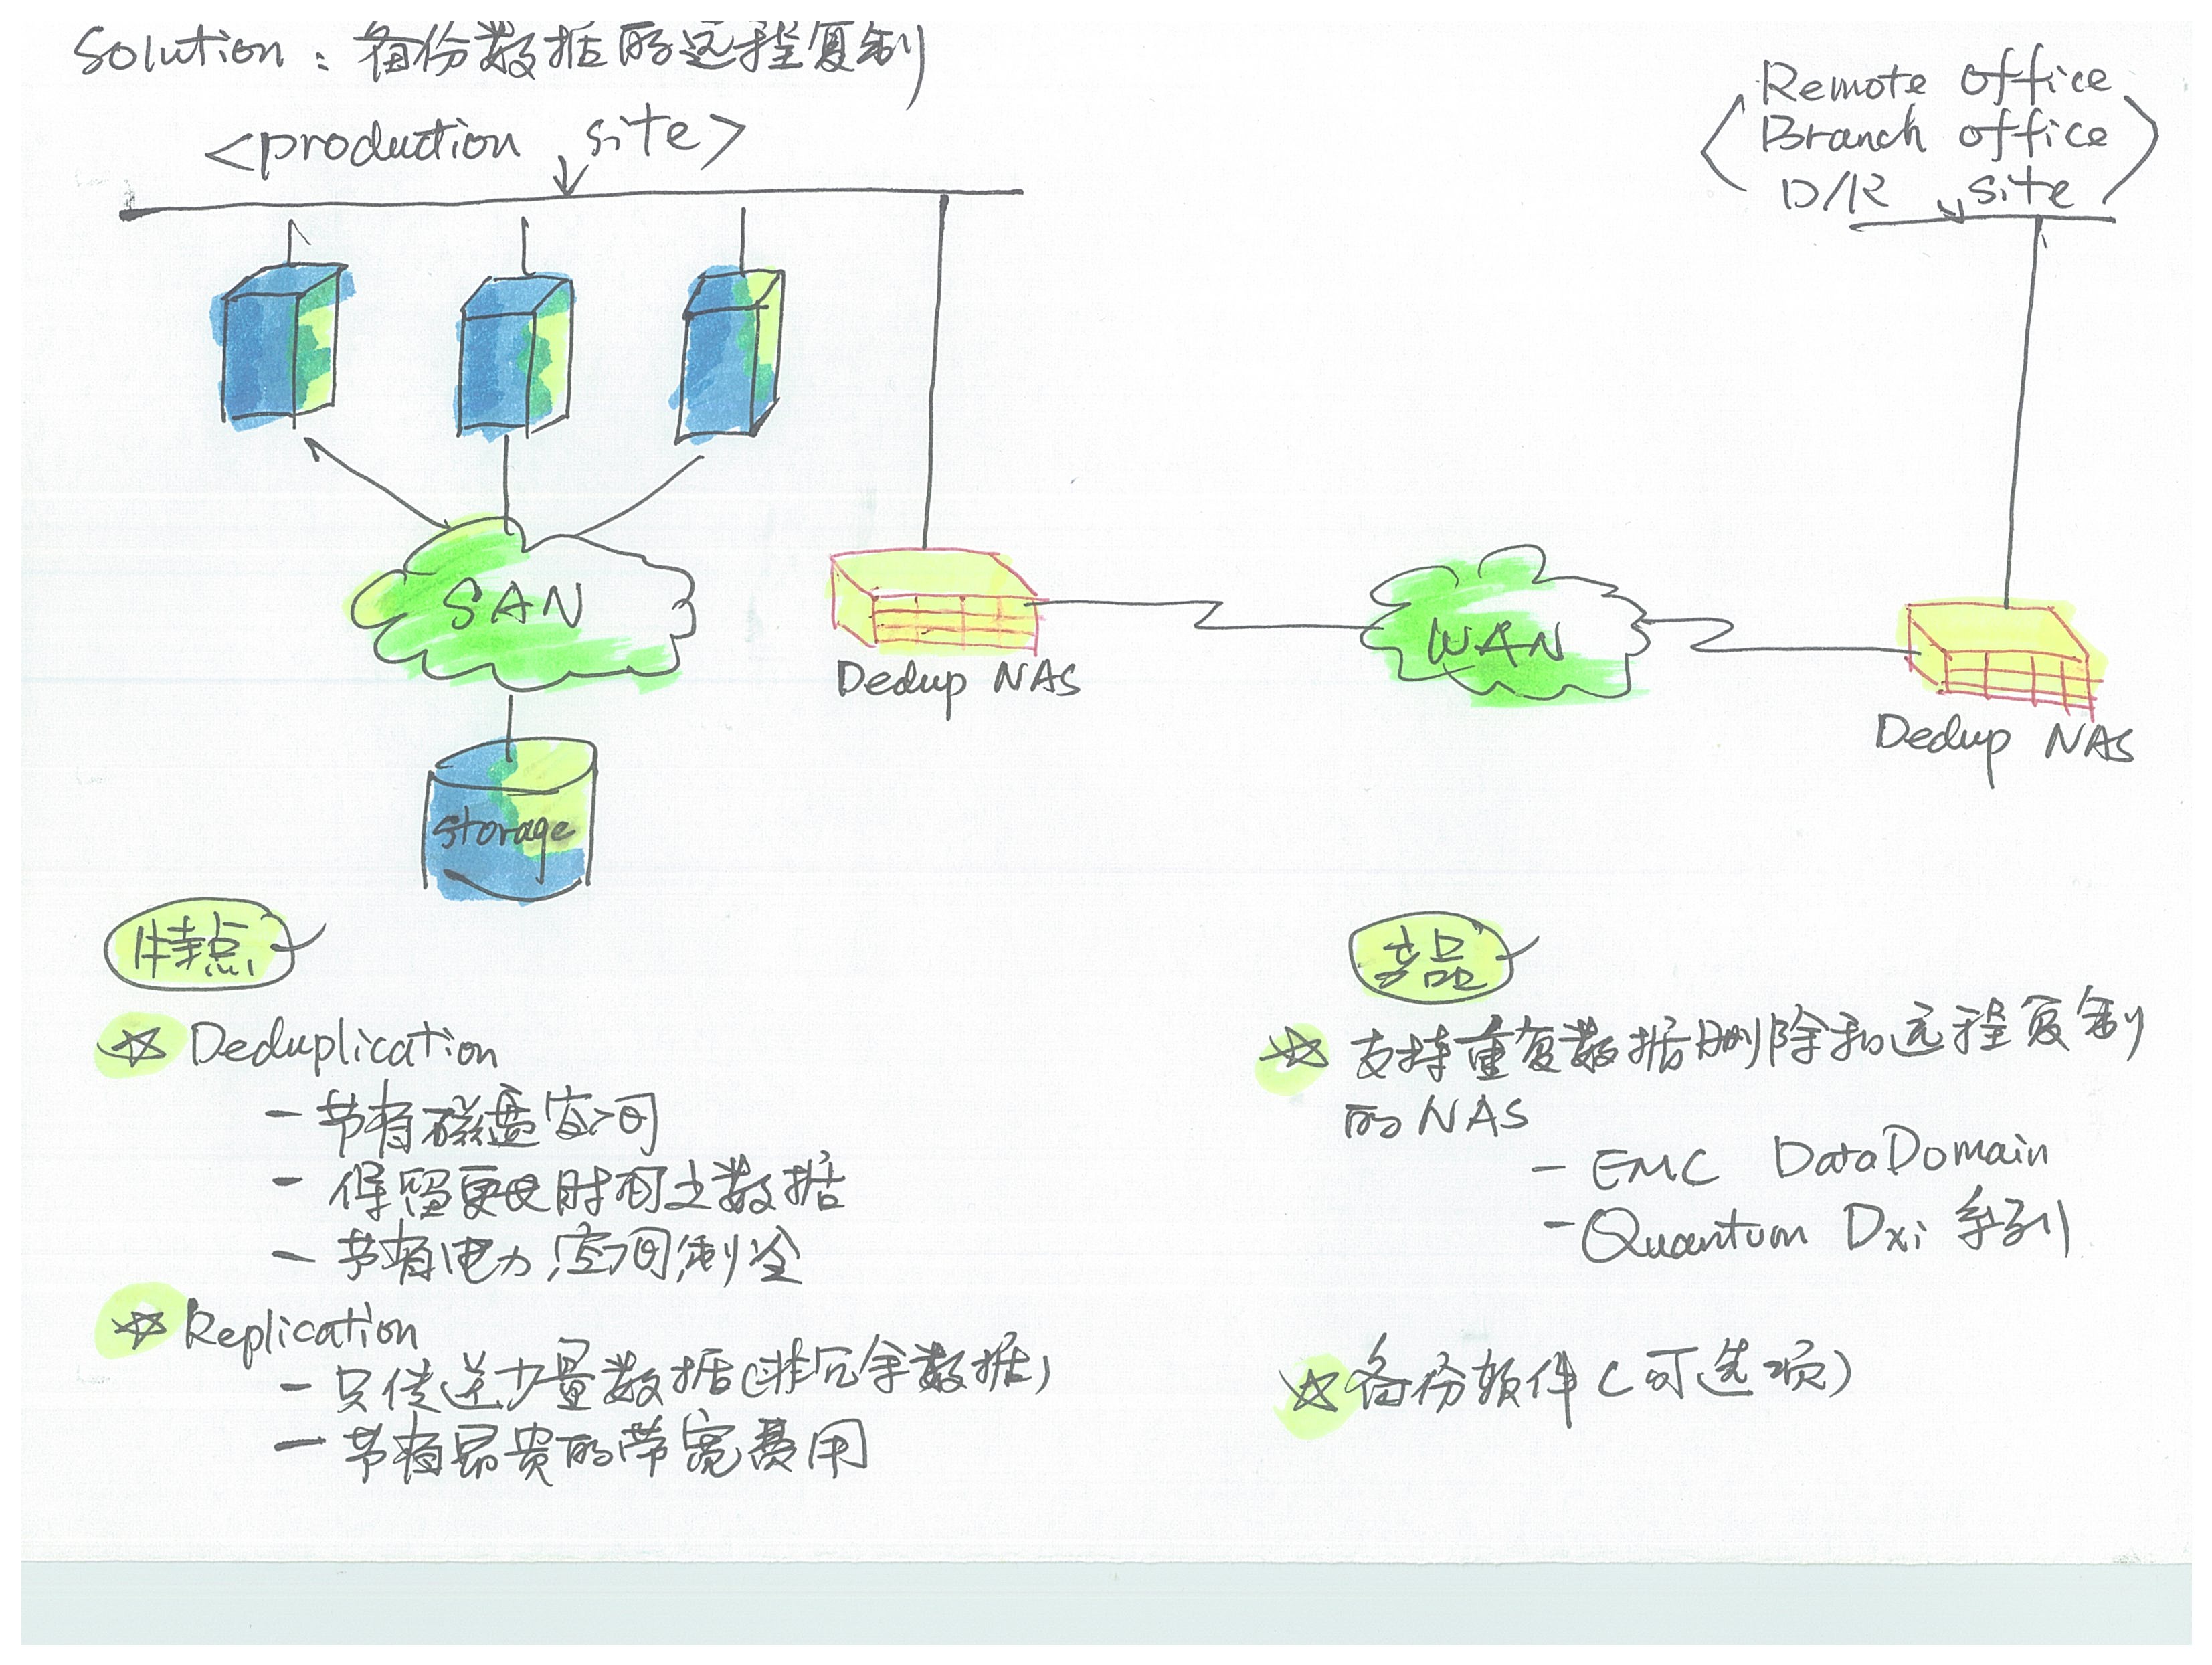 Solution：备份数据的远程复制
<production site>
Remote office
Branch office
D/R site
SAN
WAN
Dedup NAS
Dedup NAS
storage
特点
☆ Deduplication
- 节省磁盘空间
- 保留更长时间之数据
- 节省电力,空间,制冷
☆ Replication
- 只传送少量数据(非冗余数据)
- 节省昂贵的带宽费用
产品
☆ 支持重复数据删除和远程复制
的NAS
- EMC DataDomain
- Quantum Dxi 系列
☆ 备份软件(可选项)